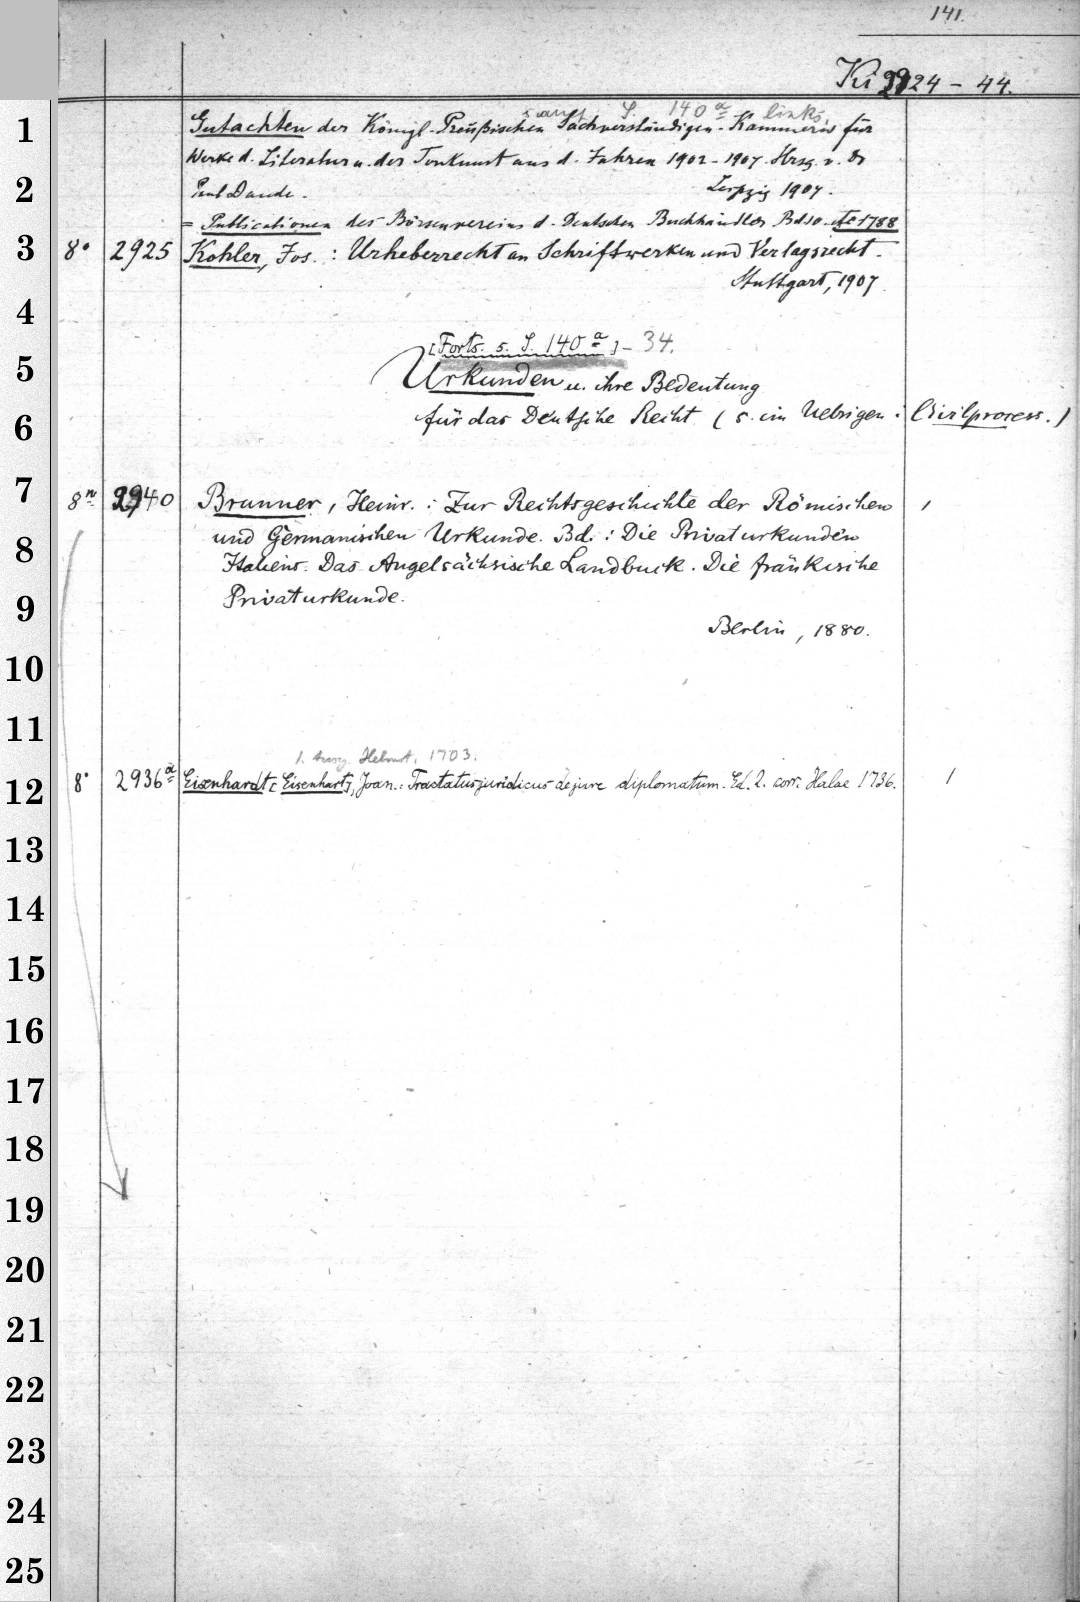 141.
Ki 2924 - 44.
s. auch S. 140 a links
Gutachten der Königl. Preußischen Sachverständigen-Kammern für
Werke d. Literatur u. der Tonkunst aus d. Jahren 1902 - 1907. Hrsg. v. Dr
Paul Daude. Leipzig 1907.
= Publicationen des Börsenvereins d. Deutschen Buchhändler Bd 10. 1788
8° 2925 Kohler, Jos. : Urheberrecht an Schriftwerken und Verlagsrecht.
Stuttgart, 1907.
[Forts. s. S. 140 a] - 34.
Urkunden u. ihre Bedeutung
für das Deutsche Recht (s. im Uebrigen: Civilprocess.)
8° 2940 Brunner, Heinr. : Zur Rechtsgeschichte der Römischen 1
und Germanischen Urkunde. Bd. : Die Privaturkunden
Italiens. Das Angelsächsische Landbuch. Die fränkische
Privaturkunde.
Berlin, 1880.
1. Ausg. Helmst. 1703.
8° 2936 a Eisenhardt [Eisenhart], Joan.: Tractatus juridicus de jure diplomatum. Ed. 2. corr. Halae 1736. 1
1
2
3
4
5
6
7
8
9
10
11
12
13
14
15
16
17
18
19
20
21
22
23
24
25